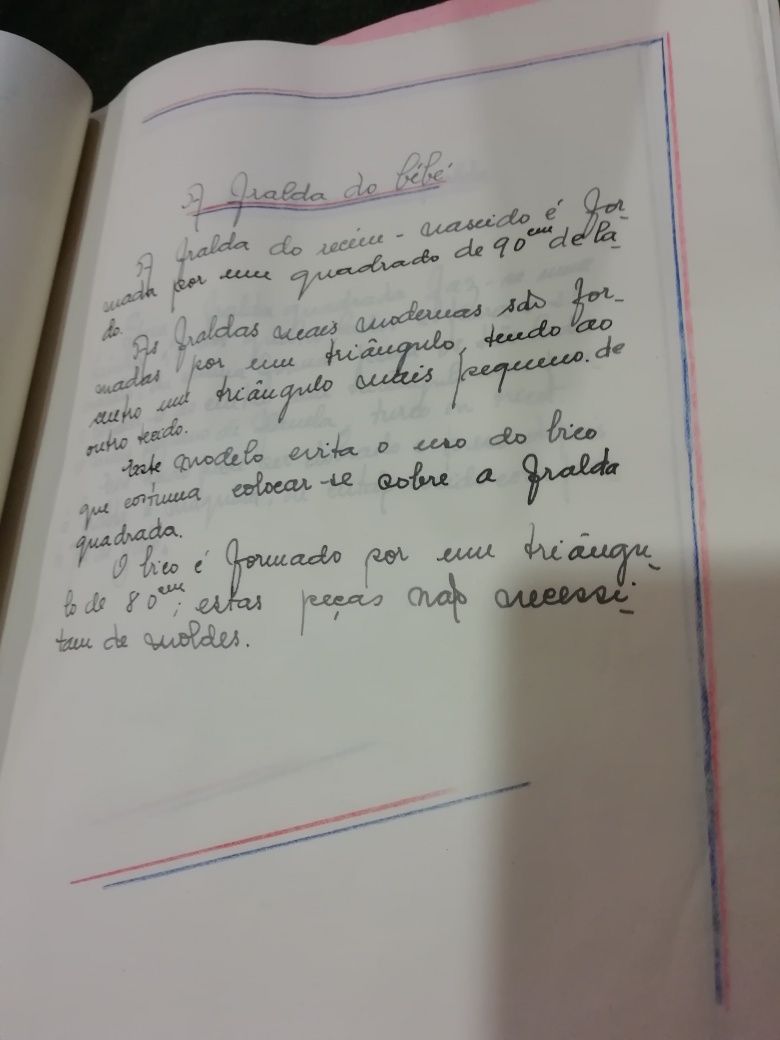 A fralda do bébé
A fralda do recém-nascido é for-
mada por um quadrado de 90cm de la-
do.
As fraldas mais modernas são for-
madas por um triângulo, tendo ao
outro um triângulo mais pequeno. de
outro tecido.
Este modelo evita o uso do bico
que costuma colocar-se sobre a fralda
quadrada.
O bico é formado por um triângu-
lo de 80cm; estas peças não necessi-
tam de moldes.